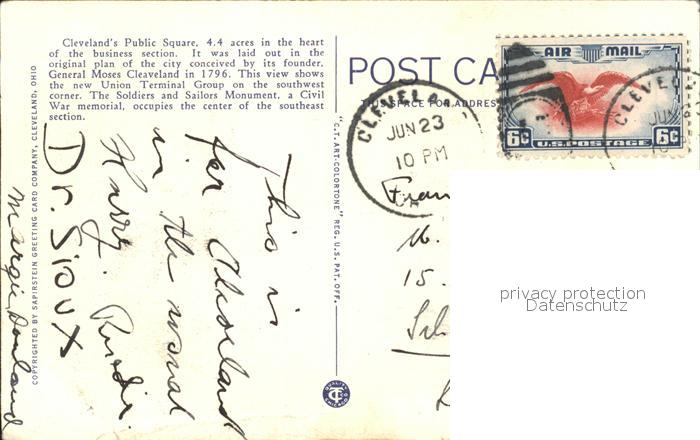 Cleveland's Public Square, 4.4 acres in the heart
of the business section. It was laid out in the
original plan of the city conceived by its founder.
General Moses Cleaveland in 1796. This view shows
the new Union Terminal Group on the southwest
corner. The Soldiers and Sailors Monument, a Civil
War memorial, occupies the center of the southeast
section.
COPYRIGHTED BY SAPIRSTEIN GREETING CARD COMPANY, CLEVELAND, OHIO
This is
far Cleveland
in the normal
Hurry.
Dr. Sioux
Margie
"C.T. ART-COLORTONE" REG. U.S. PAT. OFF.
QUALITY
CT
CHICAGO
POST CA
THIS SPACE FOR ADDRESS
CLEVELA
JUN 23
10 PM
AIR MAIL
6¢ 6¢
U.S. POSTAGE
CLEVE
JU
Fran
15.
privacy protection
Datenschutz